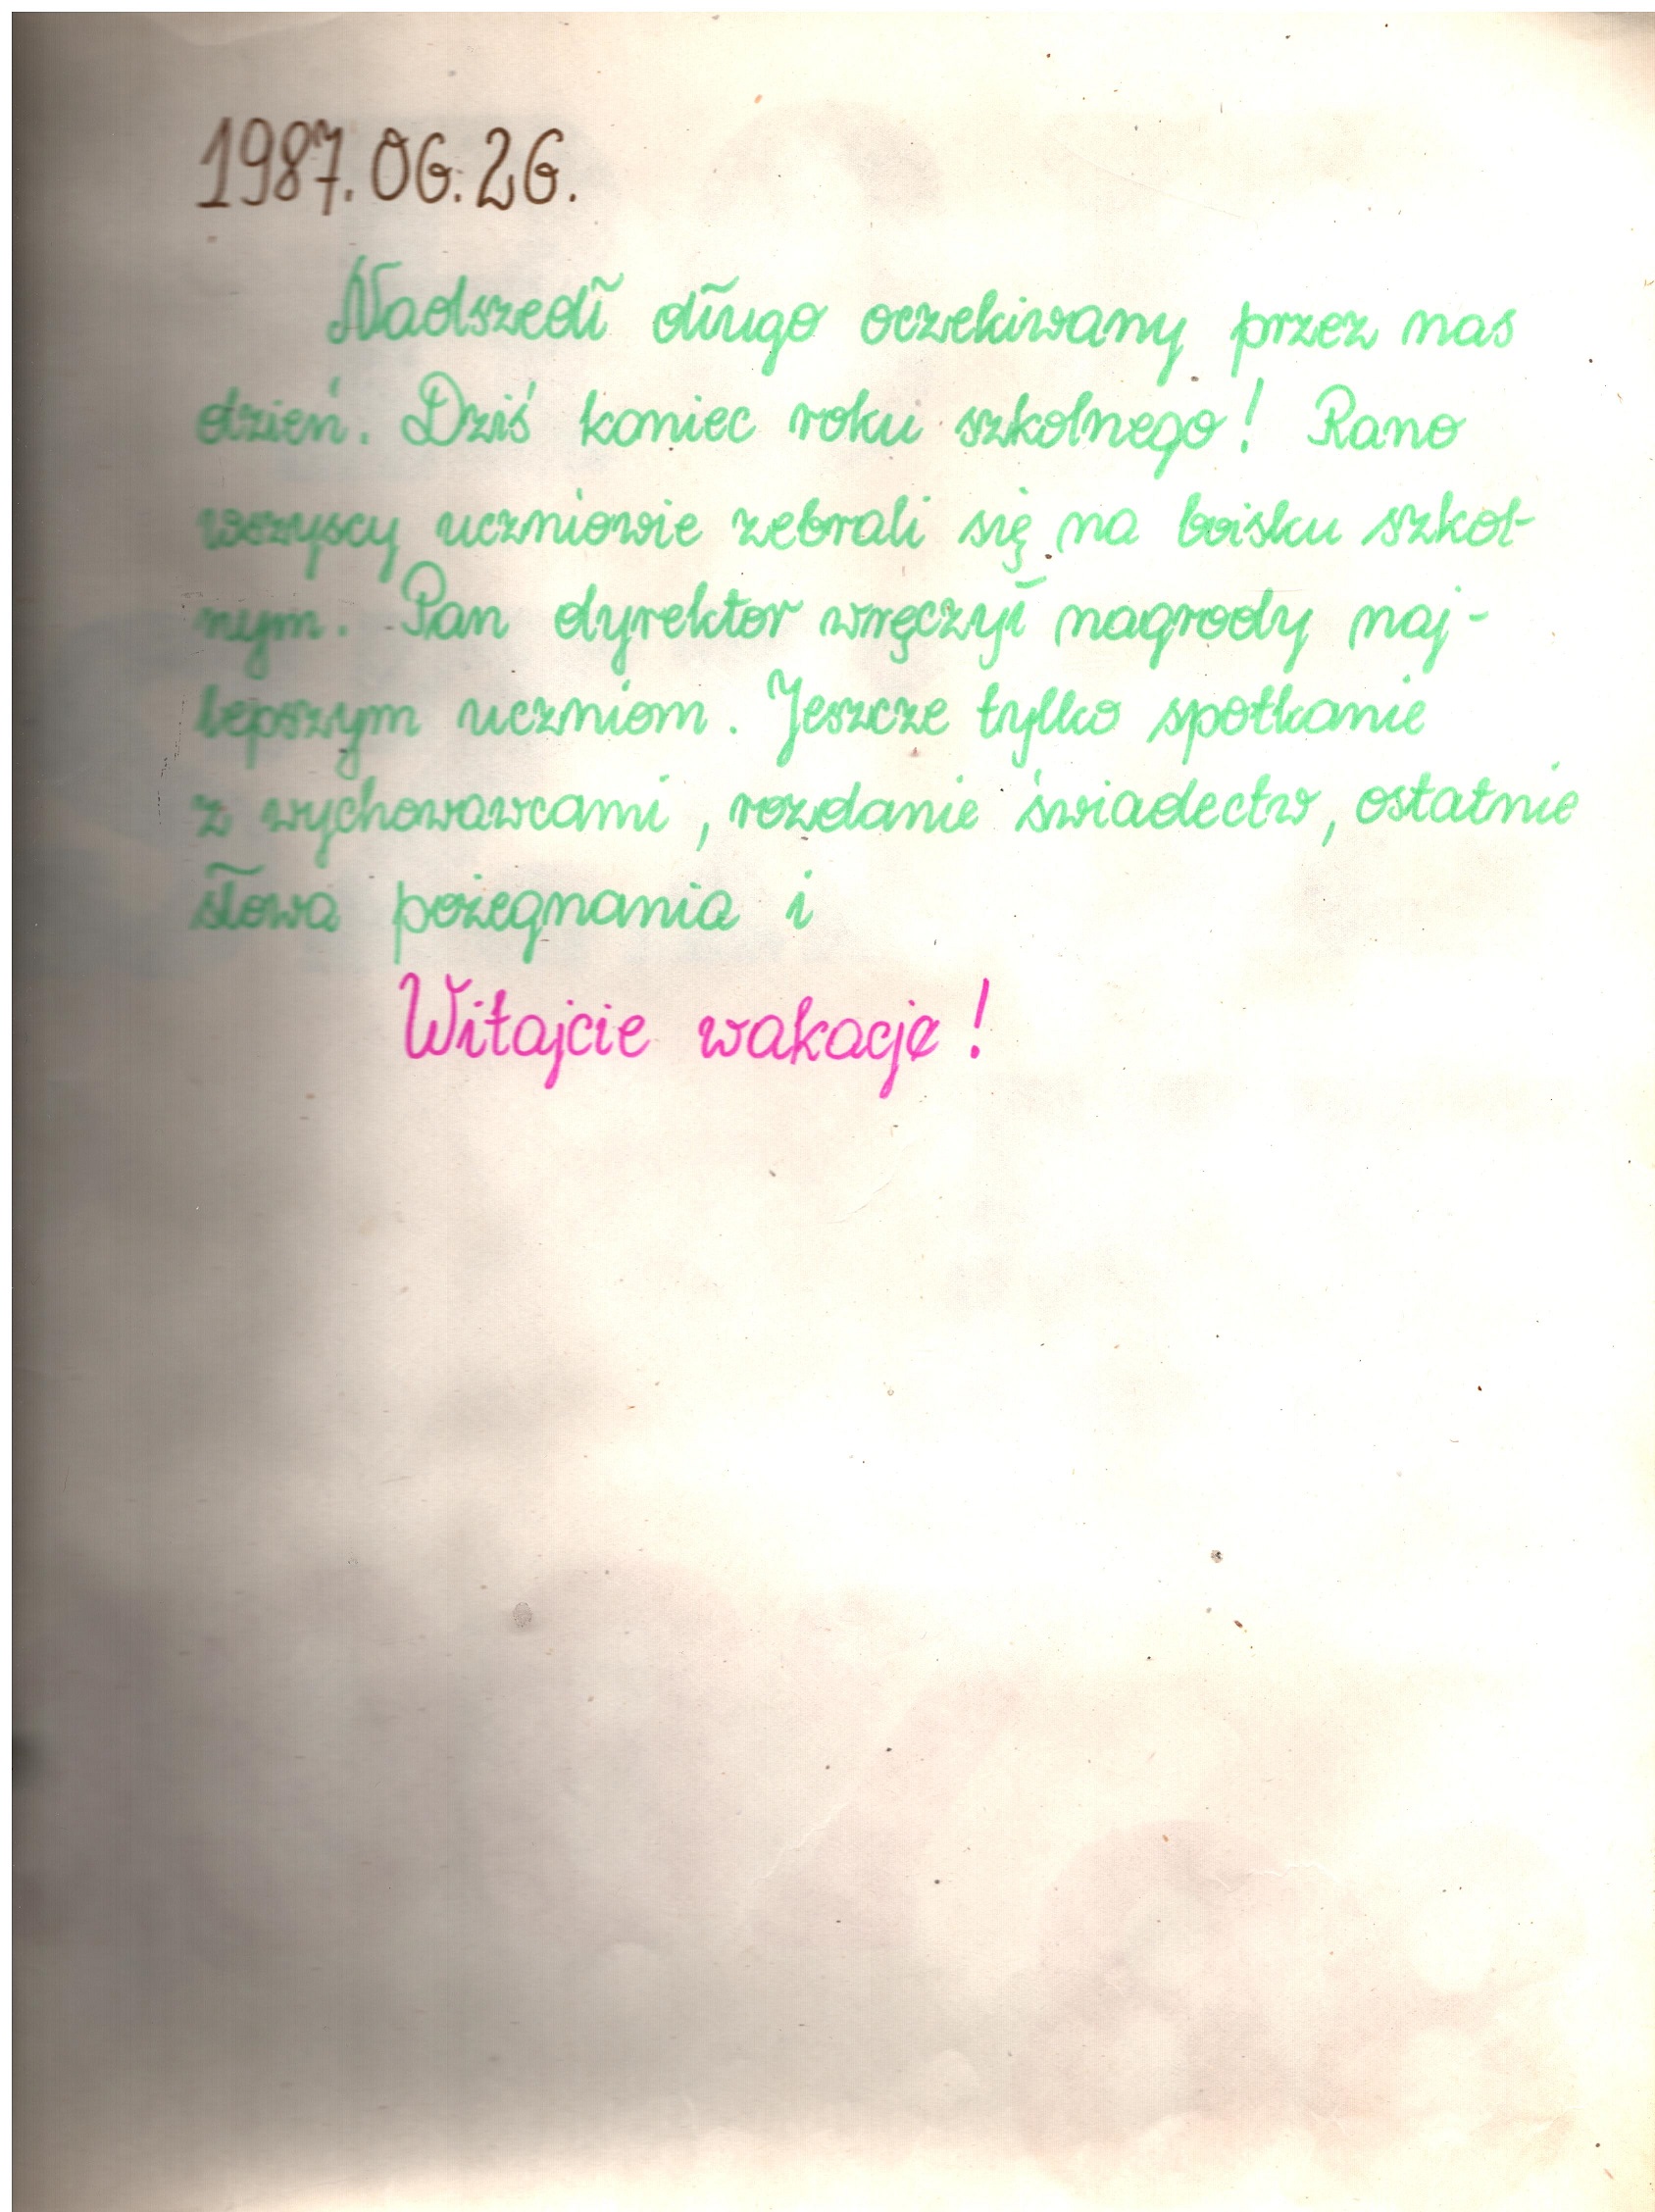 1987.06.26.
Nadszedł długo oczekiwany przez nas
dzień. Dziś koniec roku szkolnego! Rano
wszyscy uczniowie zebrali się na boisku szkol-
nym. Pan dyrektor wręczył nagrody naj-
lepszym uczniom. Jeszcze tylko spotkanie
z wychowawcami, rozdanie świadectw, ostatnie
słowa pożegnania i
Witajcie wakacje!